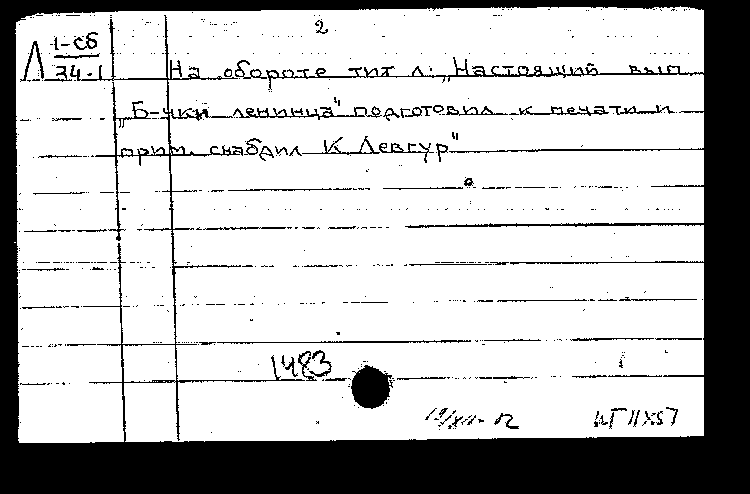 2
Л 1-сб
34-1
На обороте тит л: „Настоящий вып
„Б-чки ленинца" подготовил к печати и
прим. снабдил К. Левгур"
1483
19/XII-52